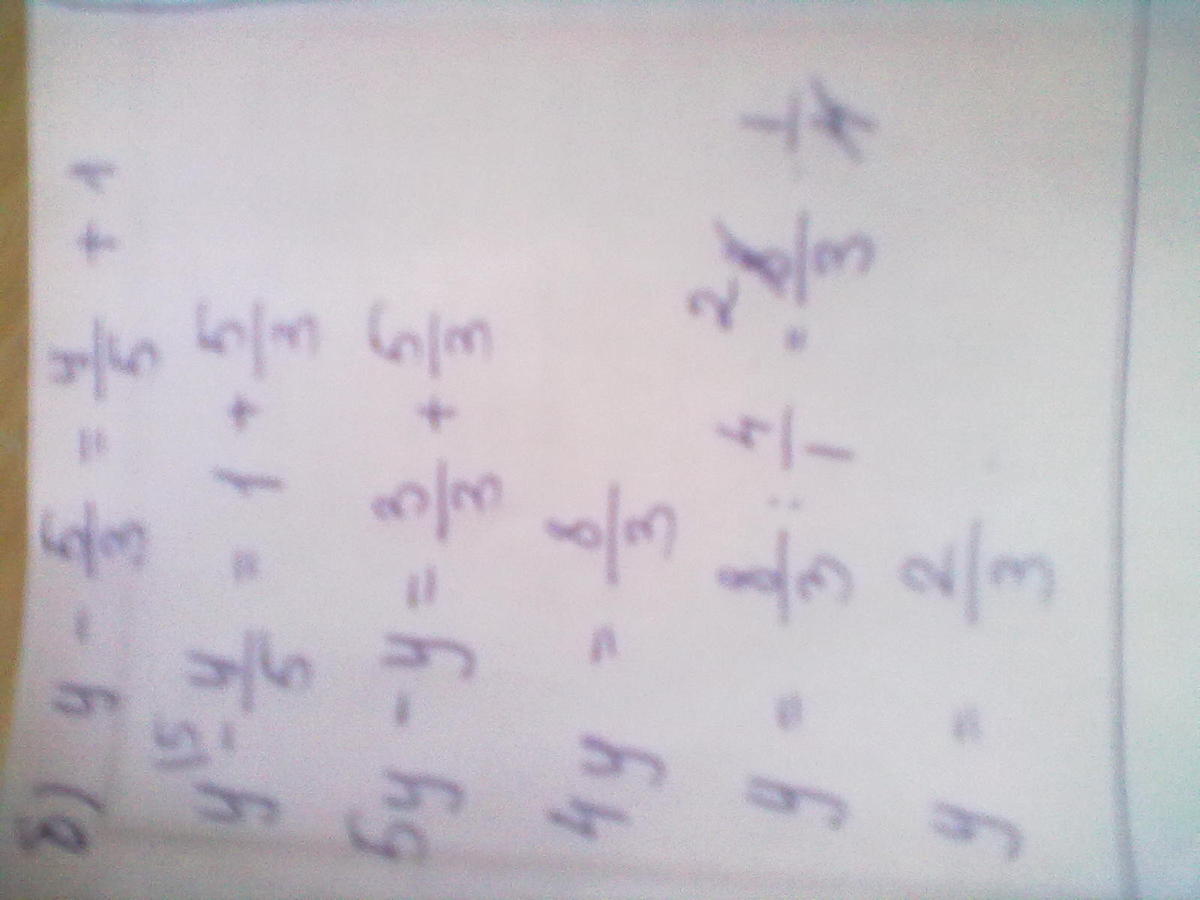 8) y - 5/3 = y/5 + 1
y |5 - y/5 = 1 + 5/3
5y - y = 3/3 + 5/3
4y = 8/3
y = 8/3 : 4/1 = 2 8/3 1/4
y = 2/3